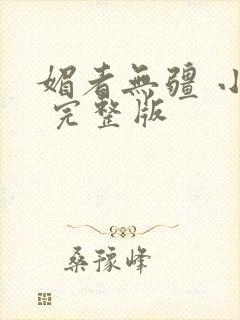 媚者無疆 小
完整版
桑豫峰